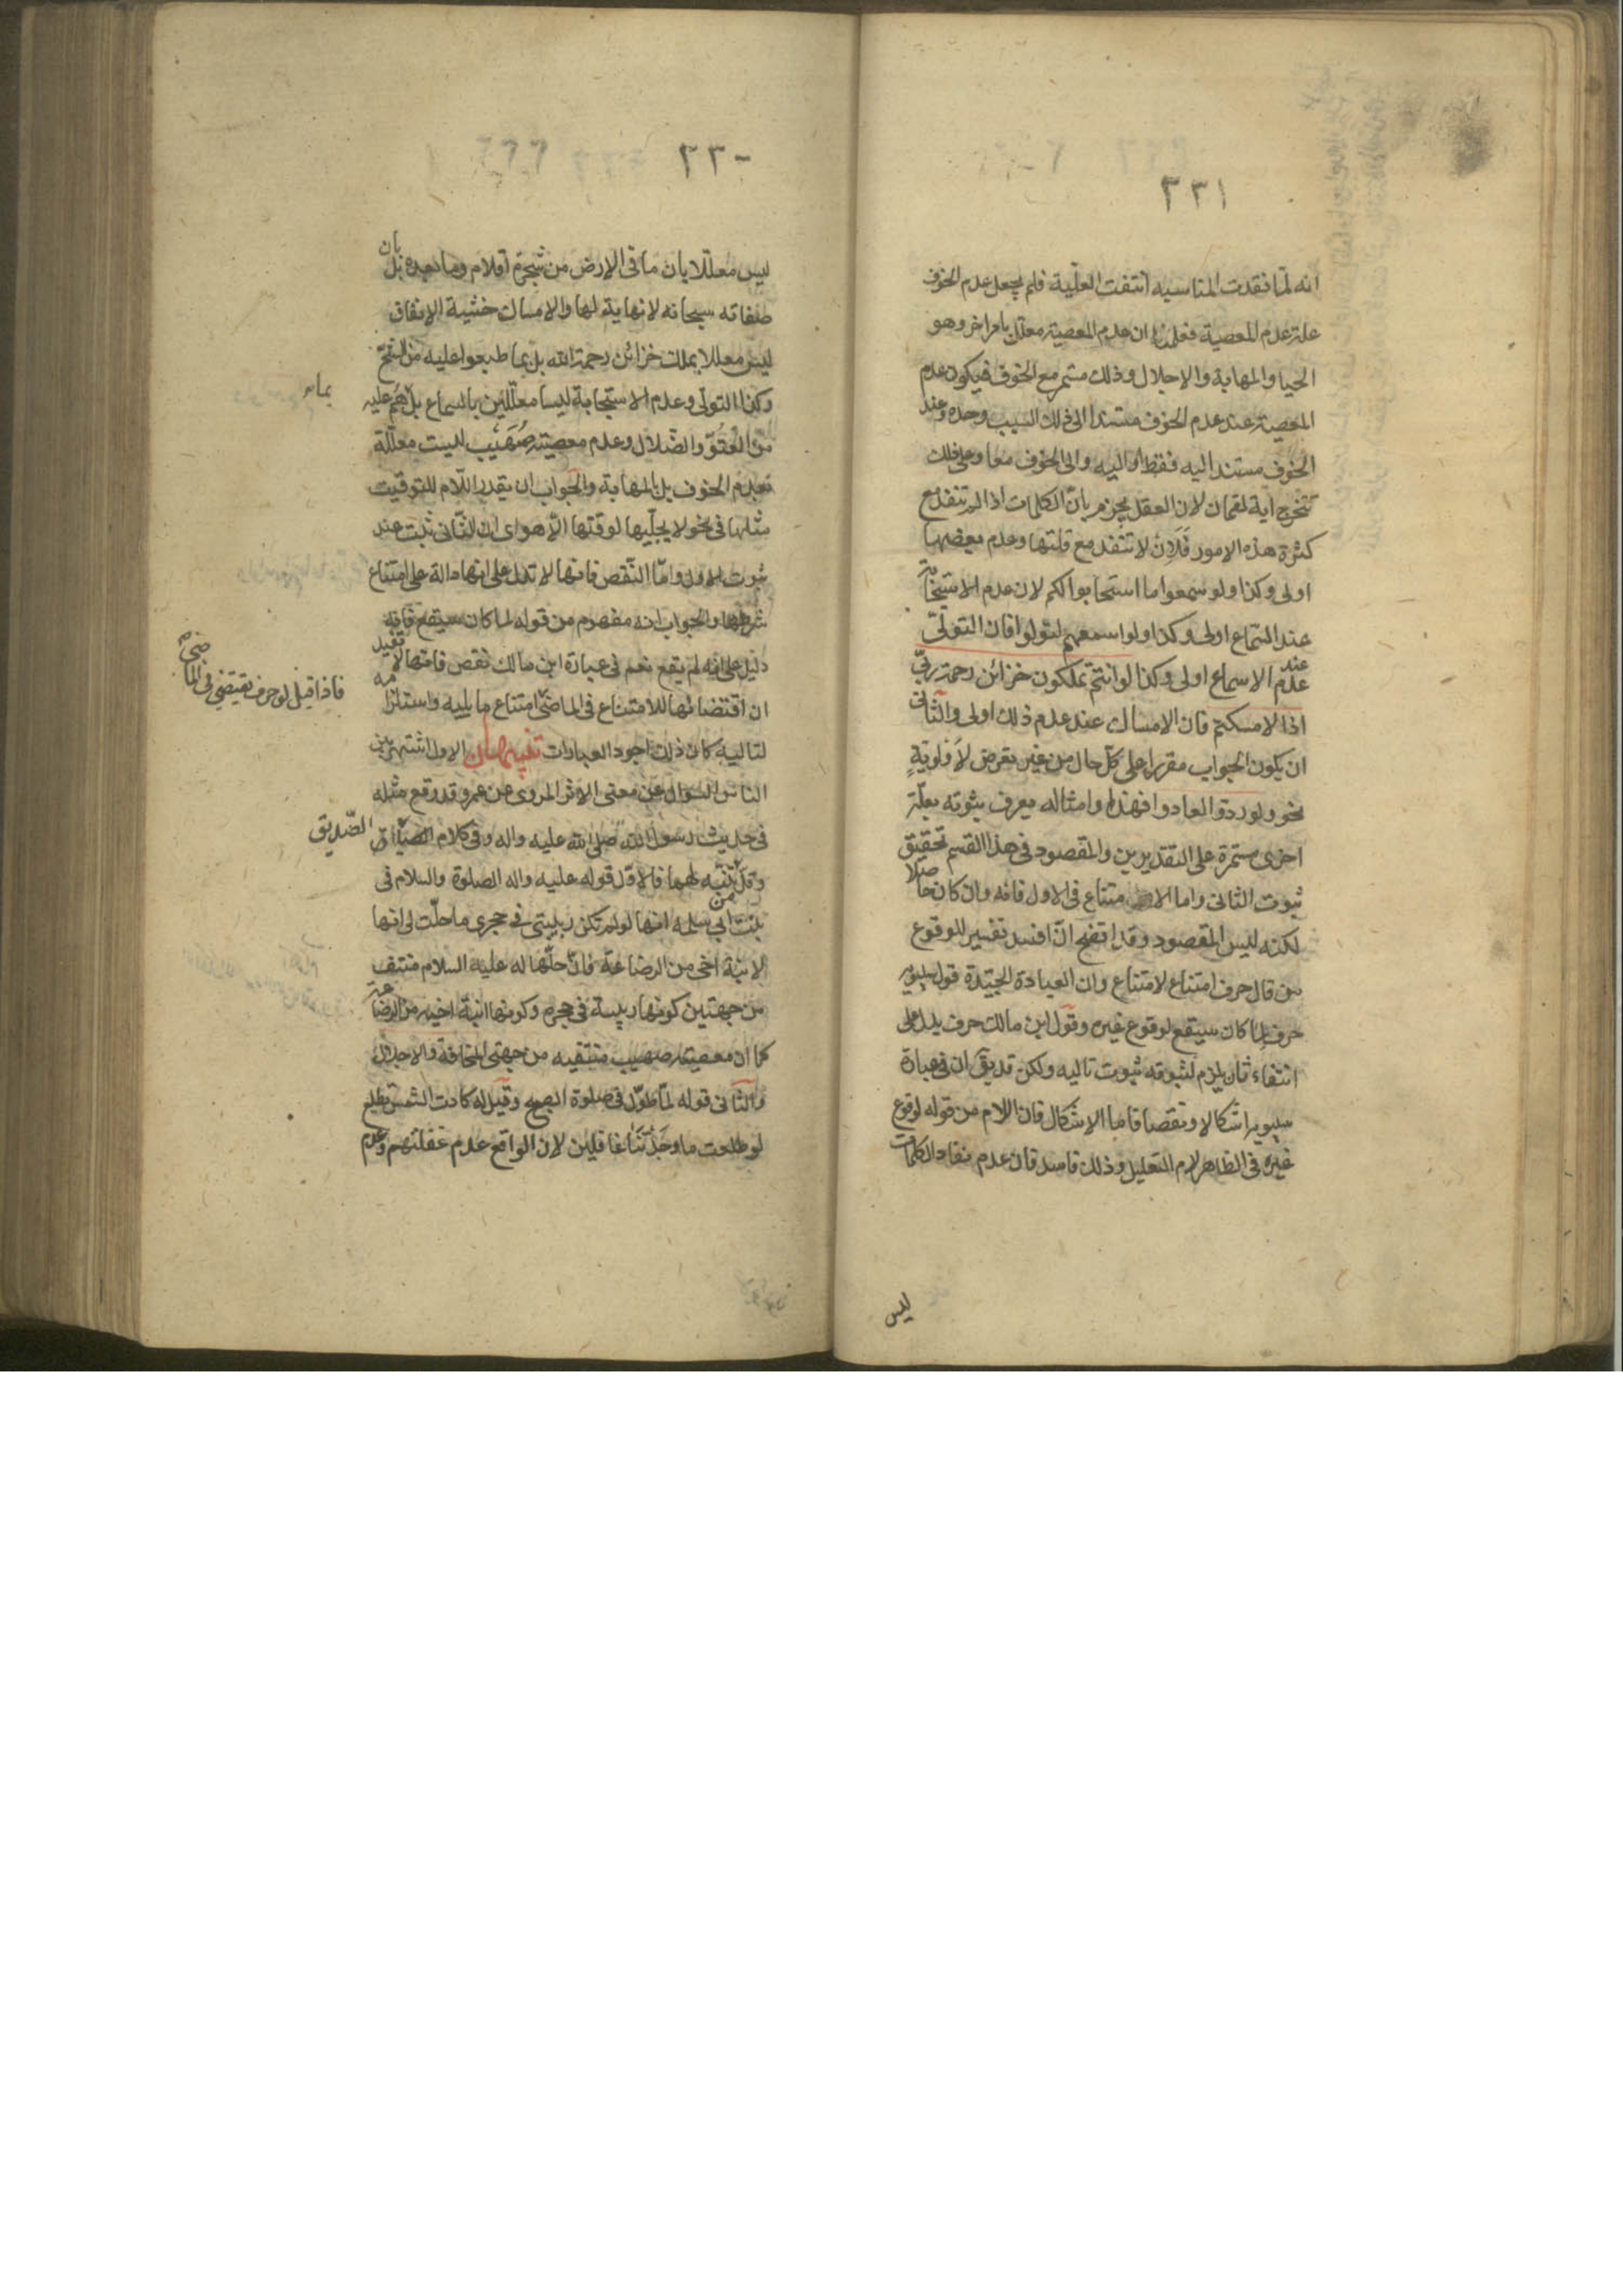 ٢٣١
انه لمّا فقدت المناسبه انتفت العلّية فلم يجعل عدم الخوف
علة عدم المعصية فعلمنا ان عدم المعصية معلل بامر اخر وهو
الحيا والمهابة والاجلال وذلك مستمر مع الخوف فيكون عدم
المعصية عند عدم الخوف مستندا الى ذلك السبب وحده وعند
الخوف مستند اليه فقط او اليه والى الخوف معا وعلى ذلك
تتخرج آية لقمان لان العقل يجزم بانّ الكلمات اذا لم تنفد مع
كثرة هذه الامور فَلَاِن لا تنفد مع قلتها وعدم بعضها
اولى وكذا ولو سمعوا ما استجابوا لكم لان عدم الاستجابة
عند السّماع اولى وكذا ولو اسمعهم لتولوا فان التولّي
عند عدم الاسماع اولى وكذا لو انتم تملكون خزائن رحمة ربّي
اذا لامسكتم فان الامساك عند عدم ذلك اولى والثّانى
ان يكون الجواب مقررا على كلّ حال من غير تعرض لأولويةٍ
نحو ولو ردّوا لعادوا فهذا وامثاله يعرف بثوته بعلّة
اخرى مستمرة على التقديرين والمقصود فى هذا القسم تحقيق
ثبوت الثانى واما الامتناع فى الاول فانه وان كان حاصلا
لكنه ليس المقصود وقد اتضح انّ افسد تفسير للوقوع
من قال حرف امتناع لامتناع وان العبادة الجيّدة قول سيبويه
حرف لما كان سيقع لوقوع غيره وقول ابن مالك حرف يدل على
انتفاء تال يلزم لثبوته ثبوت تاليه ولكن قد يق ان فى عبارة
سيبويه اشكالا ونقصا فاما الاشكال فان اللام من قوله لوقوع
غيره فى الظاهر لام التعليل وذلك فاسد فان عدم نفاد الكلمات
ليس
٢٣٠
ليس معلّلا بان ما فى الارض من شجرة اقلام وما بعده بل بان
صفاته سبحانه لا نهاية لها والامساك خشية الانفاق
ليس معللا بملك خزائن رحمة الله بل بما طبعوا عليه من الشحّ
وكذا التولى وعدم الاستجابة ليسا معلّلين بالسماع بل بما هم عليه
من العُتوّ والضّلال وعدم معصية صُهَيْب ليست معلّلة
بعدم الخوف بل بالمهابة والجواب ان يقدر اللّام للتوقيت
مثلها فى نحو لا يجلّيها لوقتها الّا هو اى ان الثّانى ثبت عند
ثبوت الاول وامّا النّقص فانها لا تدل على انها دالة على امتناع
شرطها والجواب انه مفهوم من قوله لما كان سيقع فانه
دليل على انه لم يقع نعم فى عبارة ابن مالك نقص فانها لا تفيد
ان اقتضائها للامتناع فى الماضى فاذا قيل لو حرف يقتضى فى الماضى امتناع ما يليه واستلزامه
لتاليه كان ذلك اجود العبارات تنبيهان الاول اشتهر بين
الناس السّؤال عن معنى الاثر المروى عن عمر وقد وقع مثله
فى حديث رسول الله صلى الله عليه واله وفى كلام الصديق
وقلّ من تنبّه لهما فالاوّل قوله عليه واله الصلوة والسلام فى
بنت ابى سلمه انها لو لم تكن ربيبتى فى حجرى ما حلّت لى انها
لابنة اخى من الرضاعة فانّ حلّها له عليه السلام منتف
من جهتين كونها ربيبة فى حجره وكونها ابنة اخيه من الرضاعة
كما ان معصية صهيب منتفيه من جهتى المخافة والاجلال
والثّانى قوله لمّا طوّل فى صلوة الصبح وقيل له كادت الشمس تطلع
لو طلعت ما وجدَتْنا غافلين لان الواقع عدم غفلتهم وعدم